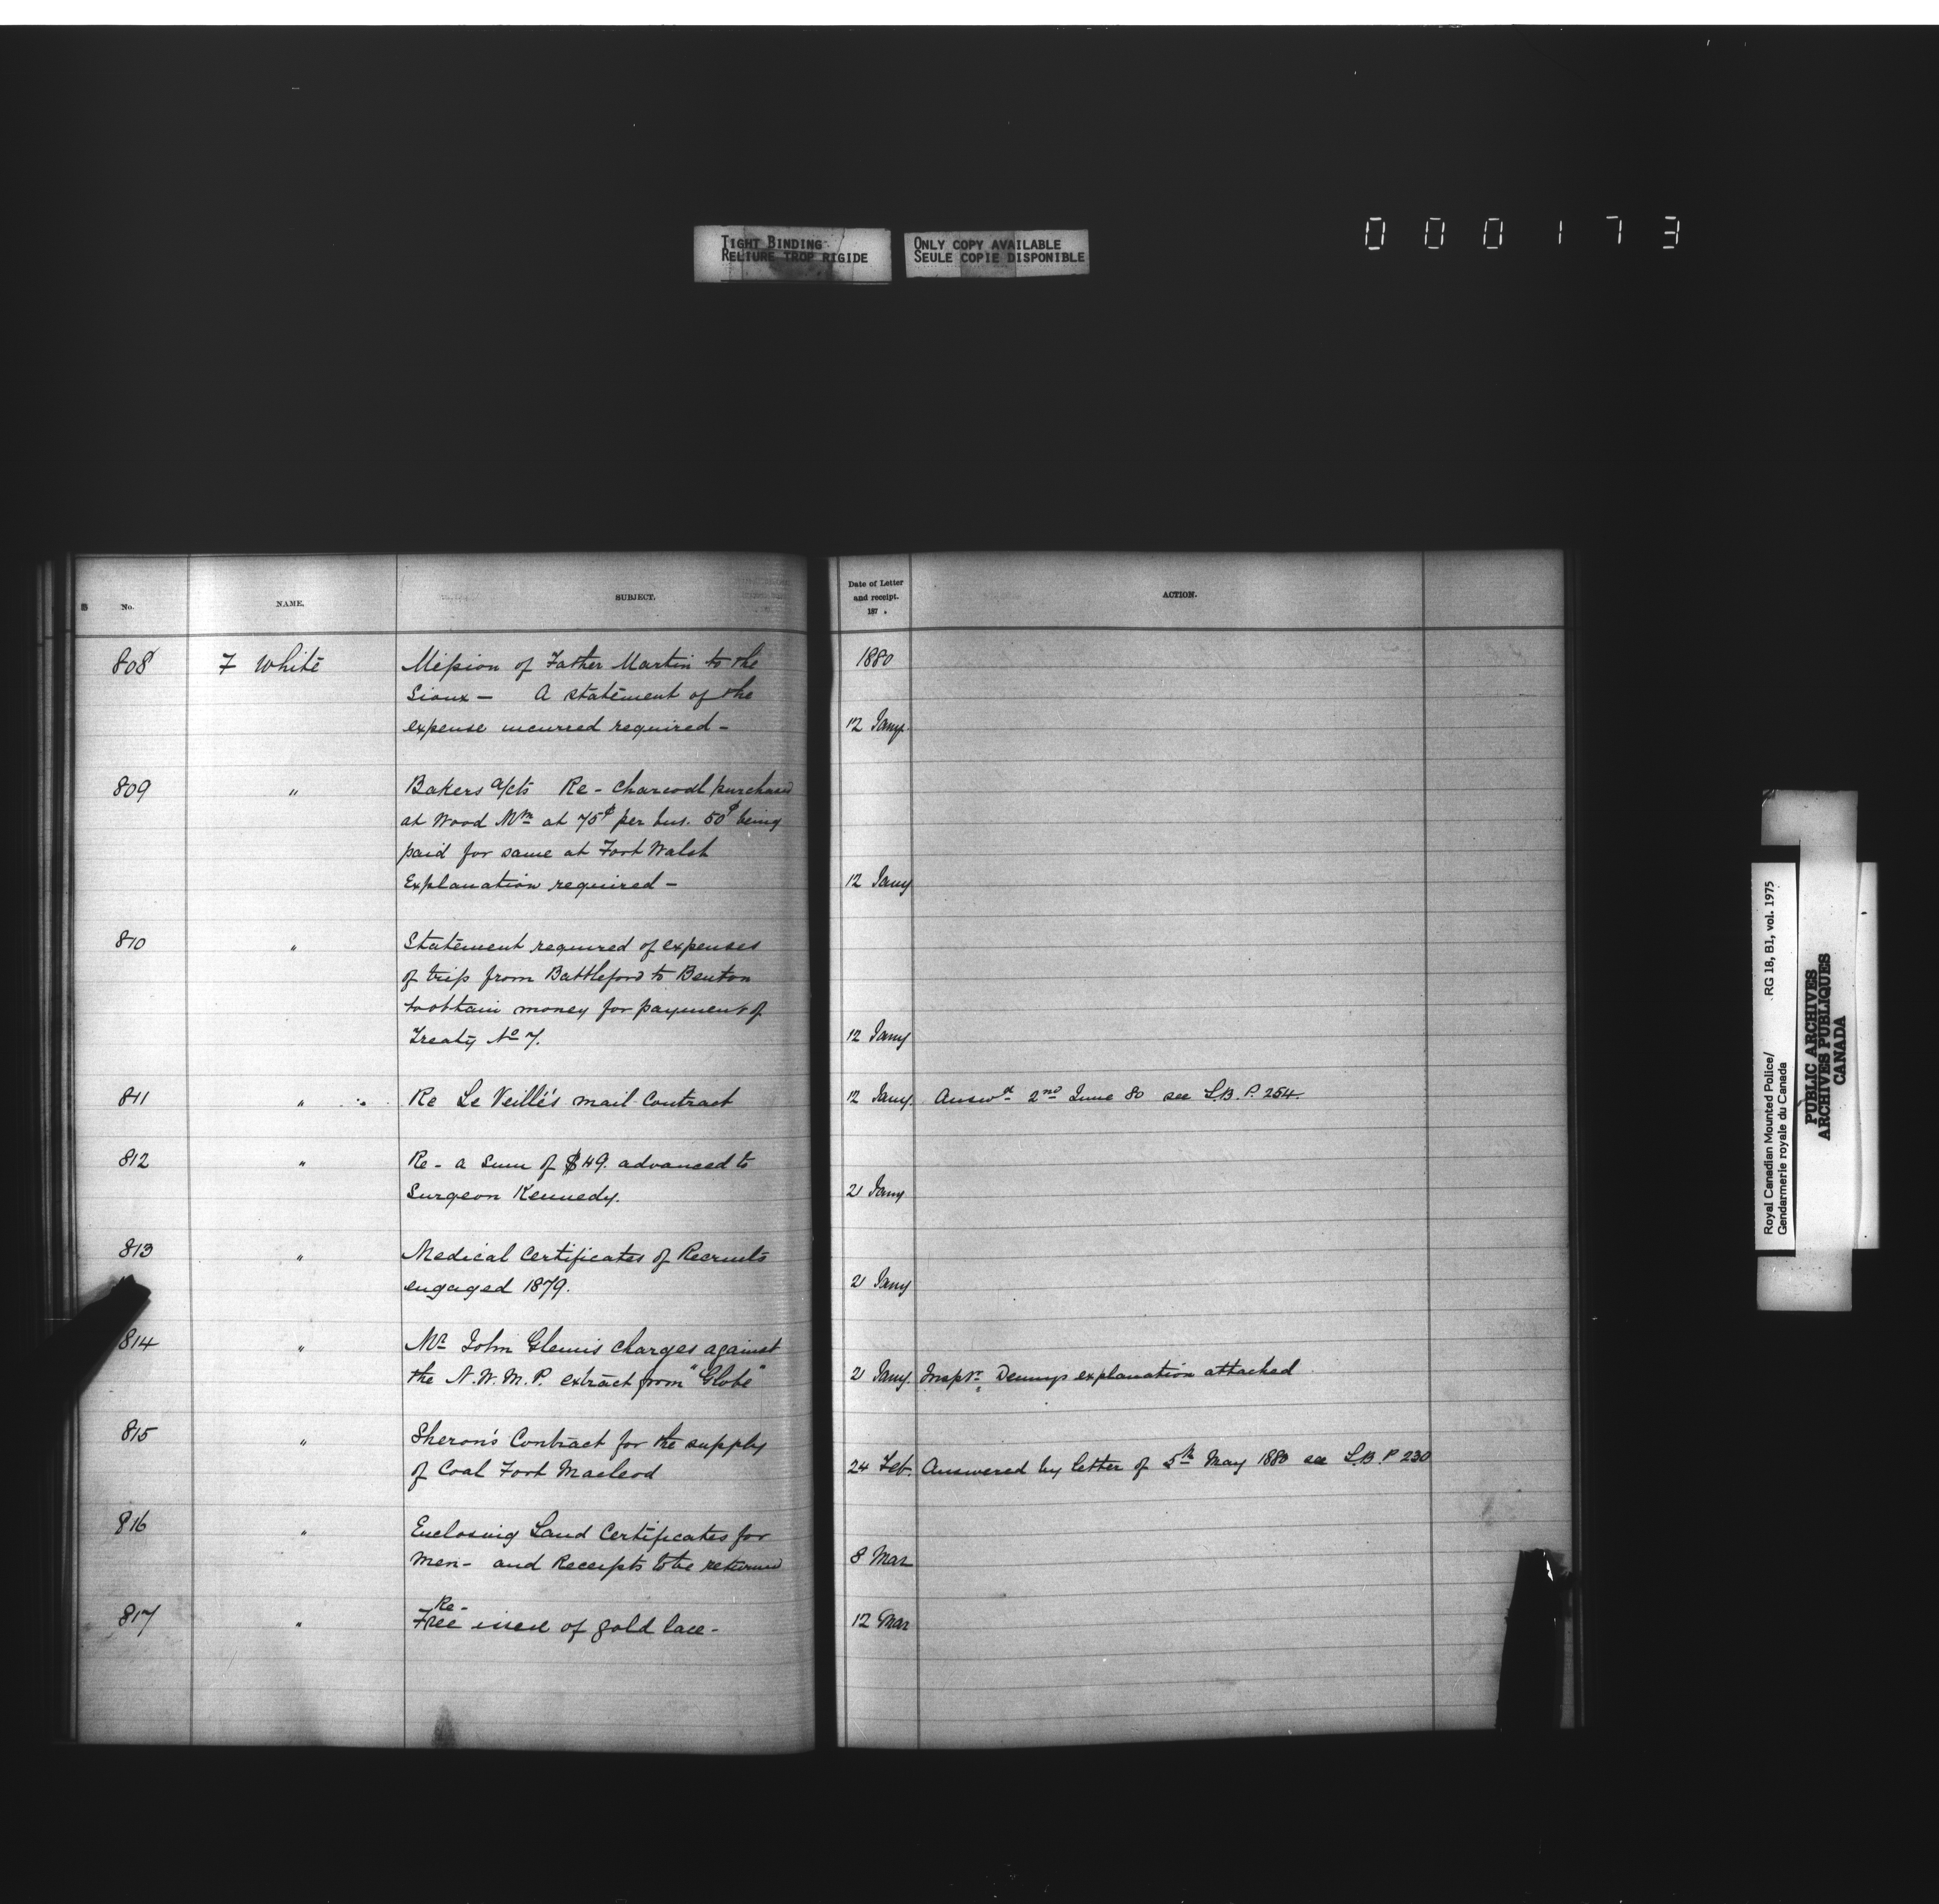 000173
TIGHT BINDING
RELIURE TROP RIGIDE
ONLY COPY AVAILABLE
SEULE COPIE DISPONIBLE
No. NAME. SUBJECT. Date of Letter and receipt. 187 . ACTION.
1880
808 F White Mission of Father Martin to the
Sioux — A statement of the
expense incurred required — 12 Jany
809 " Bakers a/cts Re - Charcoal purchased
at Wood Mtn at 75¢ per bus. 50¢ being
paid for same at Fort Walsh
Explanation required — 12 Jany
810 " Statement required of expenses
of trip from Battleford to Benton
to obtain money for payment of
Treaty No 7. 12 Jany
811 " Re Le Veillé's mail Contract 12 Jany. Answd 2nd June 80 see L.B. P. 254.
812 " Re - a Sum of $49. advanced to
Surgeon Kennedy. 21 Jany
813 " Medical Certificates of Recruits
engaged 1879. 21 Jany
814 " Mr John Glennis charges against
the N.W.M.P. extract from "Globe" 21 Jany. Inspr. Dennys explanation attached
815 " Sheron's Contract for the supply
of Coal Fort Macleod 24 Feb. Answered by letter of 5th May 1880 see L.B. P 230
816 " Enclosing Land Certificates for
Men - and Receipts to be returned 8 Mar
817 " Re -
Free issue of gold lace - 12 Mar
Royal Canadian Mounted Police/ RG 18, B1, vol. 1975
Gendarmerie royale du Canada
PUBLIC ARCHIVES
ARCHIVES PUBLIQUES
CANADA